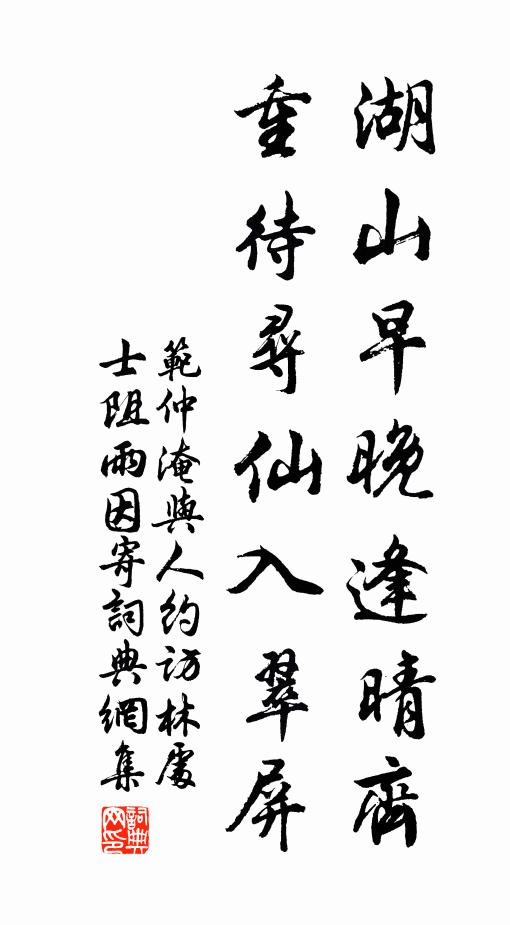 湖山早晚逢晴齊
重待尋仙入翠屏
範仲淹與人約訪林處
士阻雨因寄詞典網集
詞典網印